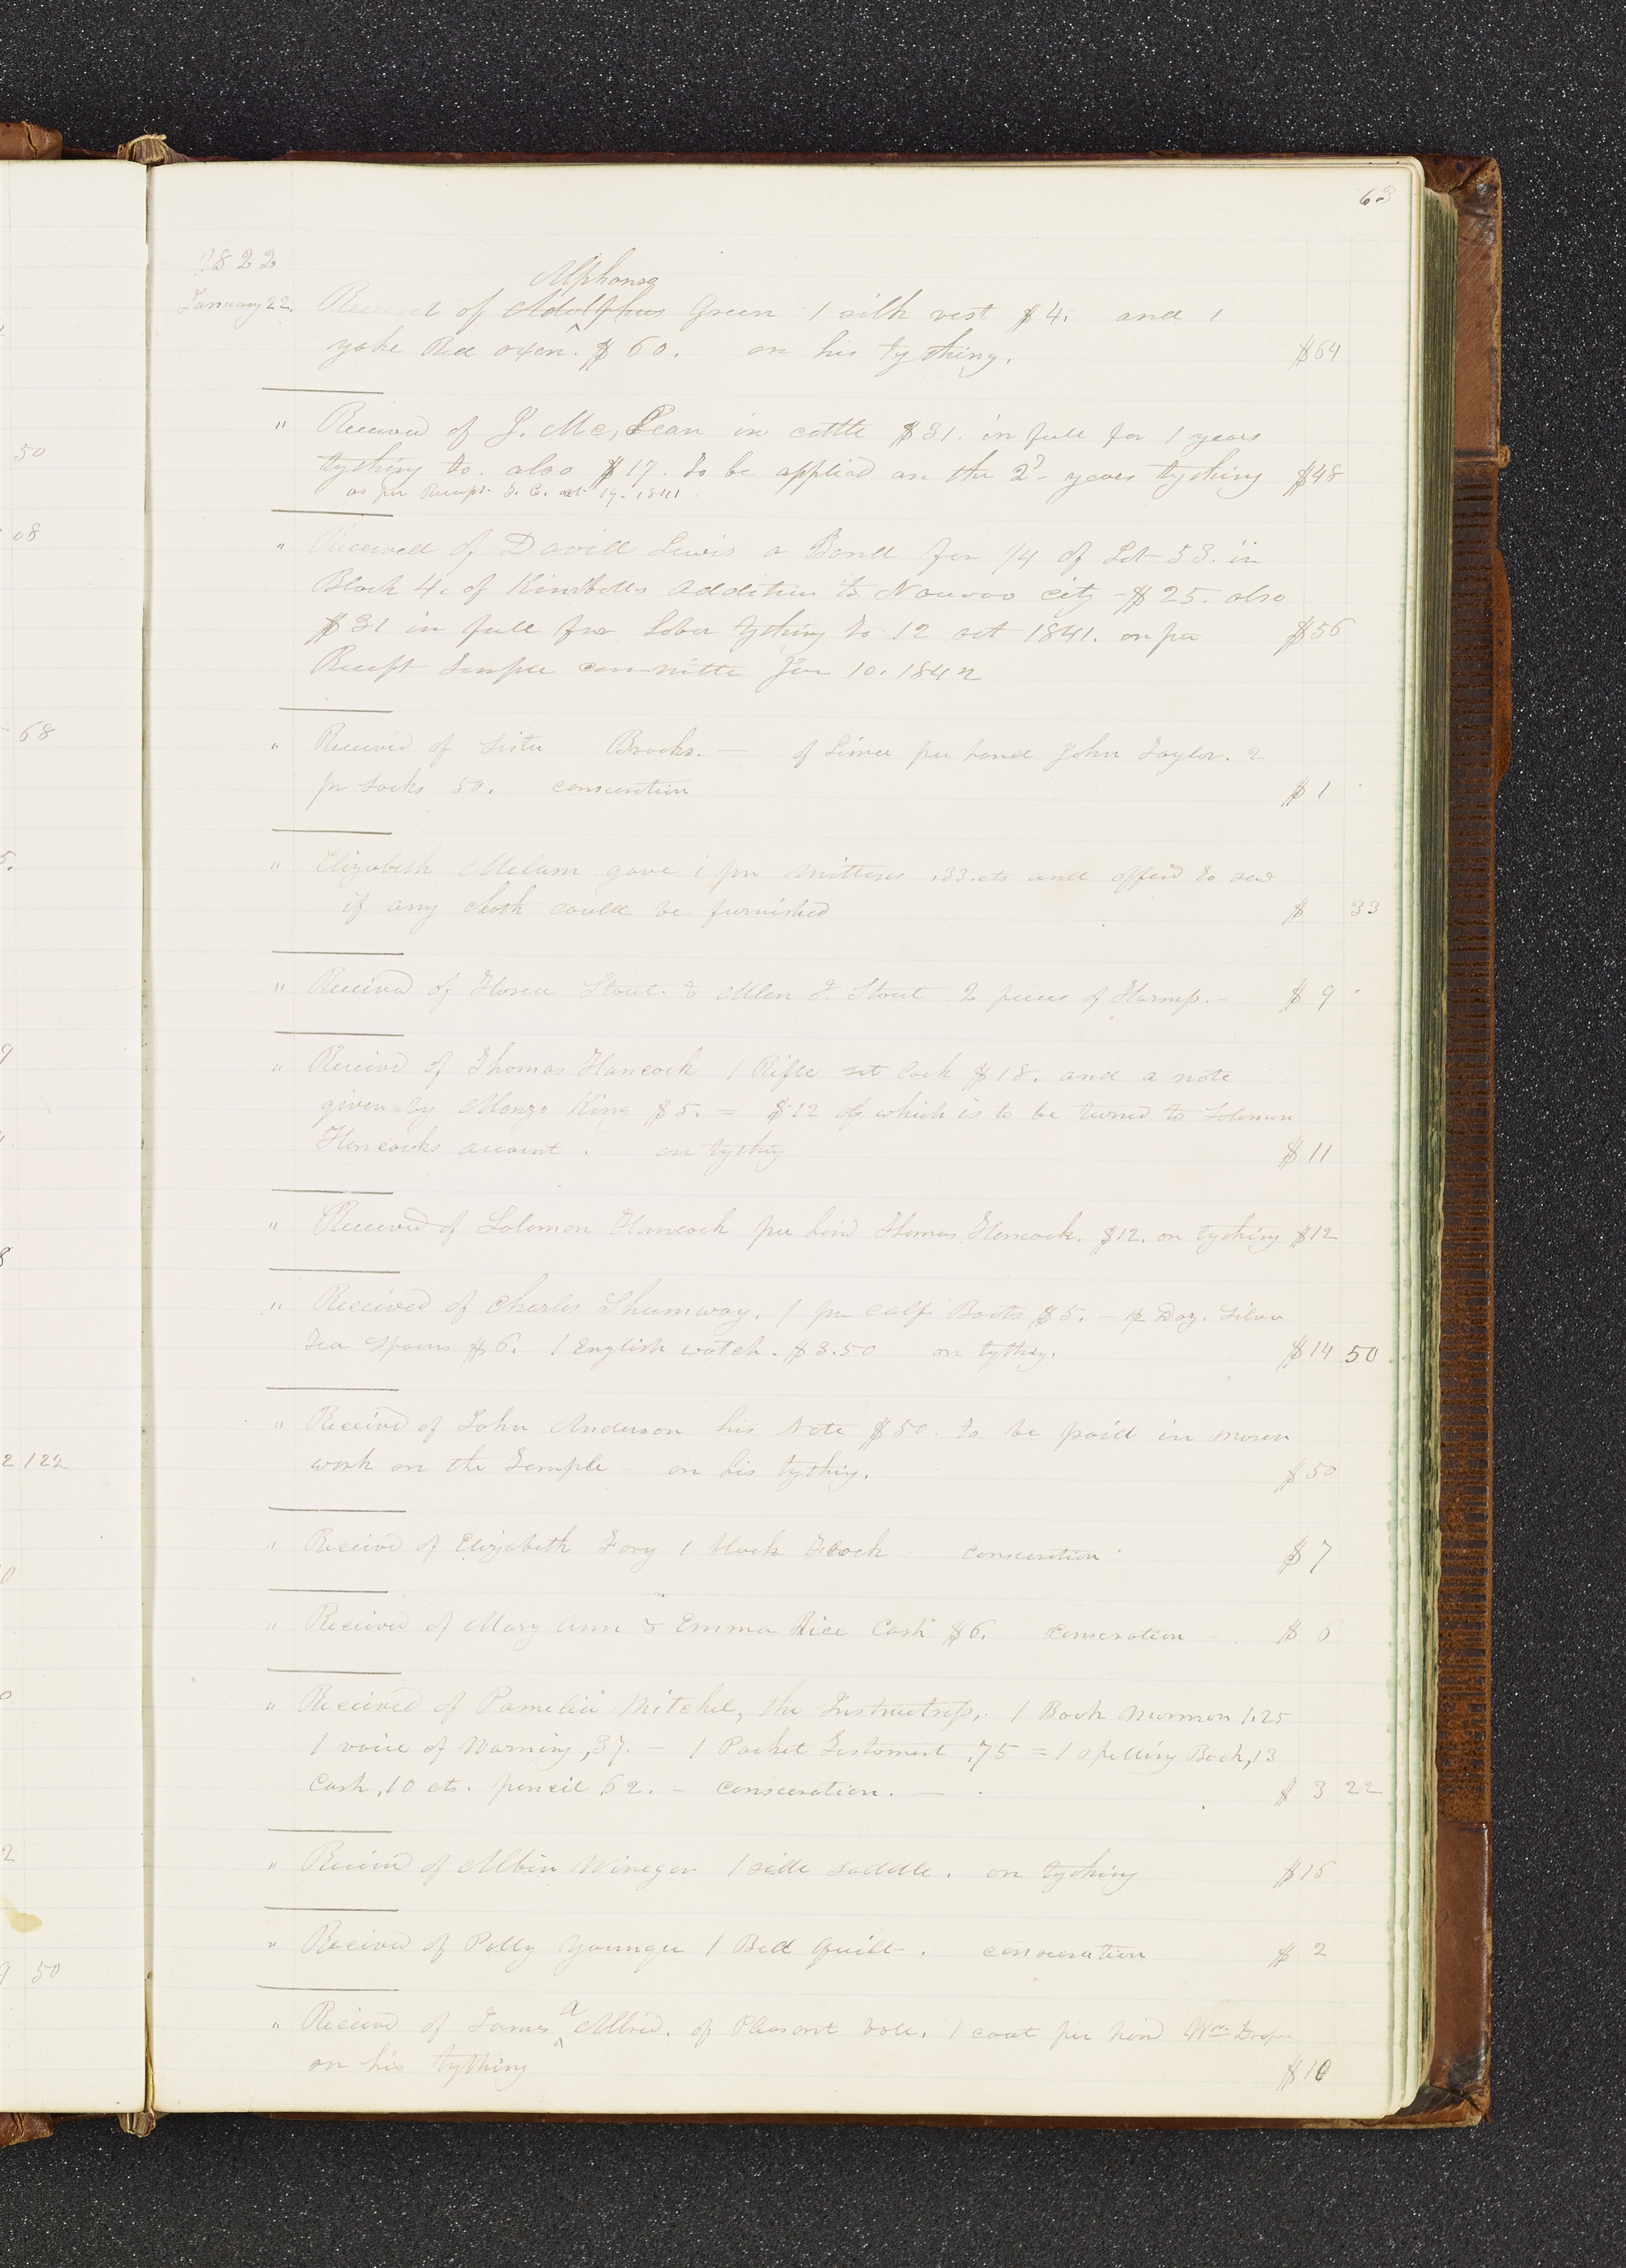 63
1822
Alphonso
January 22. Received of Adolphus Green 1 silk vest $4. and 1
yoke Red oxen. $60. on his tything. $64
" Received of J. Mc, Lean in cattle $31. in full for 1 years
tything to. also $17. to be applied on the 2d- years tything $48
as per Receipt. T. C. oct 19- 1841
" Received of David Lewis a Bond for 1/4 of Lot 53. in
Block 4. of Kimballs addition to. Nauvoo city - $25. also
$31 in full for Labor tything to 12 oct 1841. as per $56
Receipt Temple committe Jan 10. 1842
" Received of Sister Brooks. — of Lima per hand John Taylor. 2
pr socks 50. consecration $1
" Elizabeth Milam gave 1 pr mittens .33. cts and offerd to sew
if any cloth could be furnished $ 33
" Received of Hosea Stout. & Allen J. Stout 2 pieces of Harness. - $9
" Received of Thomas Hancock 1 Rifle set lock $18. and a note
given by Alonzo King $5. = $12 of which is to be turned to Solomon
Hancocks account. on tything $11
" Received of Solomon Hancock per hand Thomas Hancock. $12. on tything $12
" Received of Charles Shumway. 1 pr calf Boots $5. - 1/2 Doz. Silver
Tea Spoons $6. 1 English watch. $3.50 on tything. $14 50
" Received of John Anderson his Note $50. to be paid in mason
work on the Temple on his tything. $50
" Received of Elizabeth Fory 1 Clock consecration $7
" Received of Mary Ann & Emma Rice Cash $6. consecration - $6
" Received of Pamelia Mitchel, the Instructress,. 1 Book Mormon 1.25
1 voice of Warning ,37. - 1 Pocket Testament .75 = 1 spelling Book,13
Cash,10 cts. pencil 62. - consecration. — $3 22
" Received of Albin Winegar 1 side saddle. on tything $15
" Received of Polly Younger 1 Bed Quilt. consecration $2
a
" Received of James Allred. of Pleasant Vale. 1 coat per hand Wm. Draper
on his tything $10
50
08
- 68
5.
9
8
2122
0
0
2
9 50